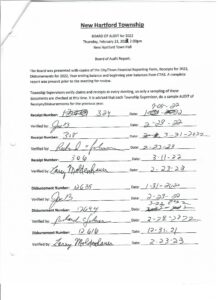 New Hartford Township
BOARD OF AUDIT for 2022
Thursday, February 23, 2023 @ 2:00pm
New Hartford Town Hall
Board of Audit Report.
The Board was presented with copies of the City/Town Financial Reporting Form, Receipts for 2022,
Disbursements for 2022, Year ending balance and beginning year balances from CTAS. A complete
report was present prior to the meeting for review.
Township Supervisors verify claims and receipts at every meeting, so only a sampling of these
documents are checked at this time. It is advised that each Township Supervisor, do a sample AUDIT of
Receipts/Disbursements for the previous year.
Receipt Number: 324 Date:
Verified by: Date: 2-23-23
Receipt Number: 318 Date:
Verified by: Richard Date: 2-23-23
Receipt Number: 306 Date: 3-11-22
Verified by: Larry Moldenhauer Date: 2-23-23
Disbursement Number: 12635 Date: 1-31-2022
Verified by: Date:
Disbursement Number: Date:
Verified by: Richard Date:
Disbursement Number: 12616 Date: 12-31-21
Verified by: Larry Moldenhauer Date: 2-23-23